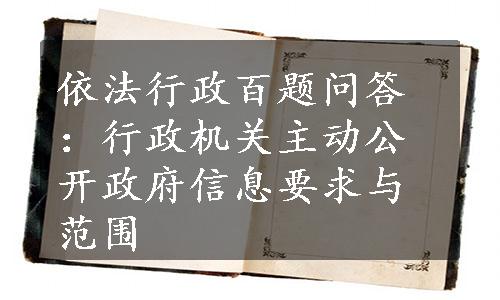 依法行政百题问答
：行政机关主动公
开政府信息要求与
范围